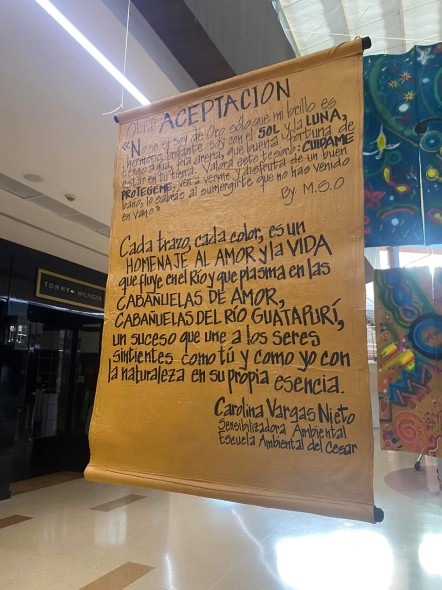 Obra: ACEPTACION
"No se si soy de Oro solo que mi brillo es
hermoso, brillante soy con el SOL y la LUNA,
tengo agua, leía, arena, que buena fortuna de
estar en tu tierra. Valora este tesoro: CUIDAME
PROTEGEME, ven a verme y disfruta de un buen
baño, lo sabrás al sumergirte que no has venido
en vano"
By M.S.O
Cada trazo, cada color, es un
HOMENAJE AL AMOR y la VIDA
que fluye en el Río y que plasma en las
CABAÑUELAS DE AMOR,
CABAÑUELAS DEL RÍO GUATAPURÍ,
un suceso que une a los seres
sintientes como tú y como yo con
la naturaleza en su propia esencia.
Carolina Vargas Nieto
Sensibilizadora Ambiental
Escuela Ambiental del Cesar
TOMMY HILFIGER